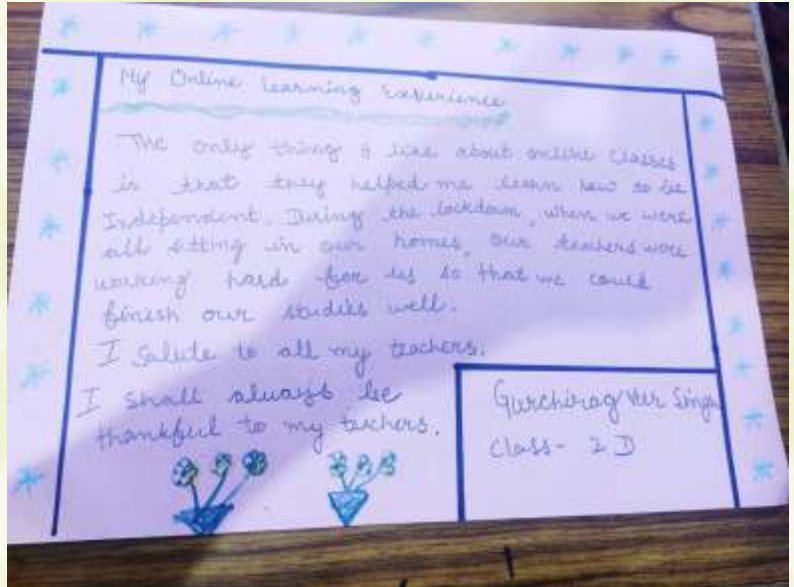 My Online Learning Experience
The only thing I like about online classes
is that they helped me learn how to be
Independent. During the lockdown, when we were
all sitting in our homes, our teachers were
working hard for us so that we could
finish our studies well.
I Salute to all my teachers.
I shall always be
thankful to my teachers.
Gurchirag Vir Singh
Class- 2 D